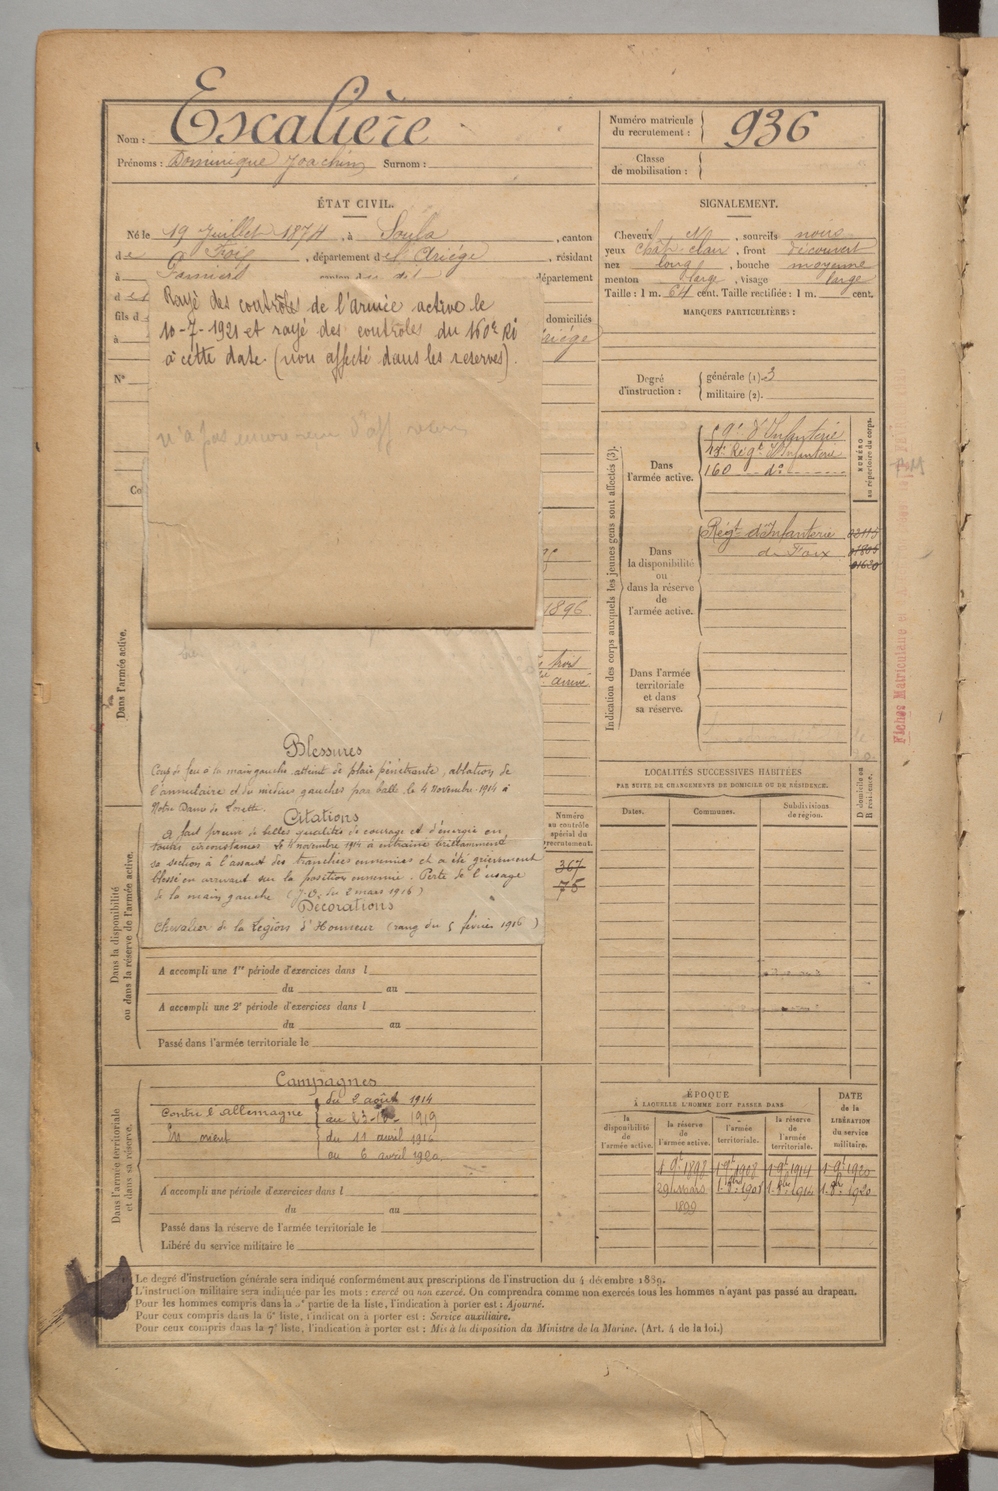 Nom : Escalière
Prénoms : Dominique Joachim Surnom :
Numéro matricule
du recrutement : 936
Classe
de mobilisation :
ÉTAT CIVIL.
Né le 19 Juillet 1874, à Soula, canton
de Foix, département de l'Ariège, résidant
à Pamiers canton dud dit département
d
fils d domiciliés
à Ariège
N°
Rayé des contrôles de l'armée active le
10-7-1921 et rayé des contrôles du 160e RI
à cette date (non affecté dans les réserves).
n'a pas encore d'aff
Co
1896
trois
arrivé
Blessures
Coup de feu à la main gauche atteint de plaie pénétrante, ablation de
l'annulaire et du médius gauches par balle le 4 novembre 1914 à
Notre Dame de Lorette.
Citations
a fait preuve de belles qualités de courage et d'énergie en
toutes circonstances. Le 4 novembre 1914 a entraîné brillamment
sa section à l'assaut des tranchées ennemies et a été grièvement
blessé en arrivant sur la position ennemie. Perte de l'usage
de la main gauche (J.O. du 2 mars 1916)
Décorations
Chevalier de la Légion d'Honneur (rang du 5 février 1916)
Dans l'armée active.
Dans la disponibilité
ou dans la réserve de l'armée active.
Numéro
au contrôle
spécial du
recrutement.
367
75
A accompli une 1re période d'exercices dans l
du au
A accompli une 2e période d'exercices dans l
du au
Passé dans l'armée territoriale le
Dans l'armée territoriale
et dans sa réserve.
Campagnes
Contre l'allemagne du 2 août 1914
au 23 1919
En orient du 11 avril 1916
au 6 avril 1920
A accompli une période d'exercices dans l
du au
Passé dans la réserve de l'armée territoriale le
Libéré du service militaire le
SIGNALEMENT.
Cheveux , sourcils noirs
yeux chât-clair, front découvert
nez long, bouche moyenne
menton large, visage large
Taille : 1 m. 64 cent. Taille rectifiée : 1 m. cent.
MARQUES PARTICULIÈRES :
Degré
d'instruction :
générale (1). 3
militaire (2).
Indication des corps auxquels les jeunes gens sont affectés (3).
NUMÉRO
au répertoire du corps.
Dans
l'armée active.
59e d'Infanterie
Régt d'Infanterie
160 do
Dans
la disponibilité
ou
dans la réserve
de
l'armée active.
Régt d'Infanterie 03115
de Foix 01805
01620
Dans l'armée
territoriale
et dans
sa réserve.
Fiches Matriculaire
LOCALITÉS SUCCESSIVES HABITÉES
PAR SUITE DE CHANGEMENTS DE DOMICILE OU DE RÉSIDENCE.
Dates. Communes. Subdivisions
de région.
D domicile ou
R résidence.
ÉPOQUE
À LAQUELLE L'HOMME DOIT PASSER DANS
la
disponibilité
de
l'armée active.
la réserve
de
l'armée active.
l'armée
territoriale.
la réserve
de
l'armée
territoriale.
DATE
de la
LIBÉRATION
du service
militaire.
1 9e 1898 1 9e 1908 1 9e 1914 1 9e 1920
29 mars 1.8bre 1908 1.8bre 1914 1.8bre 1920
1899
Le degré d'instruction générale sera indiqué conformément aux prescriptions de l'instruction du 4 décembre 1889.
L'instruction militaire sera indiquée par les mots : exercé ou non exercé. On comprendra comme non exercés tous les hommes n'ayant pas passé au drapeau.
Pour les hommes compris dans la 2e partie de la liste, l'indication à porter est : Ajourné.
Pour ceux compris dans la 6e liste, l'indication à porter est : Service auxiliaire.
Pour ceux compris dans la 7e liste, l'indication à porter est : Mis à la disposition du Ministre de la Marine. (Art. 4 de la loi.)